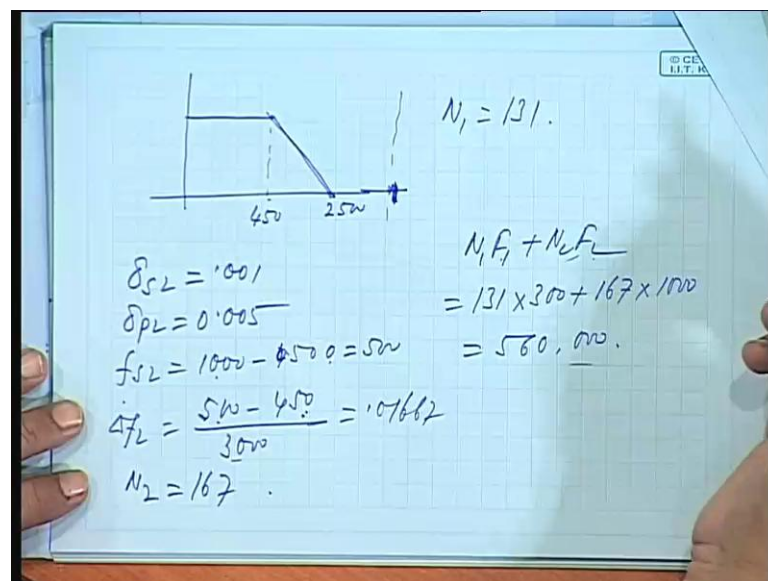 © CE
I.I.T. K
N₁ = 131.
450
2500
δs2 = .001
δp2 = 0.005
fs2 = 1000 - 500 = 500
Δf2 = (500 - 450) / 3000 = .01667
N2 = 167.
N₁F₁ + N₂F₂
= 131 x 300 + 167 x 1000
= 560,000.